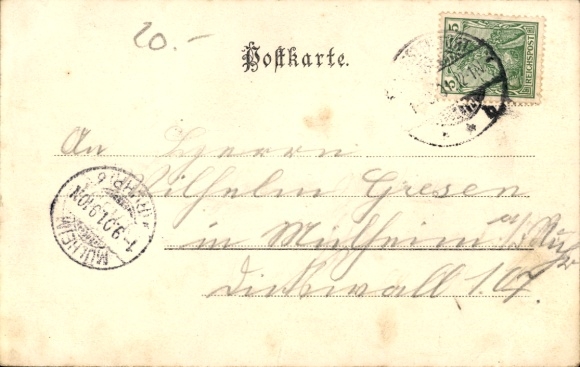 20.-
Postkarte.
5 REICHSPOST 5
An Herrn
Wilhelm Gresen
in Mülheim a/ Ruhr
Dickswall 107.
MÜLHEIM
1.9.01.9-10N